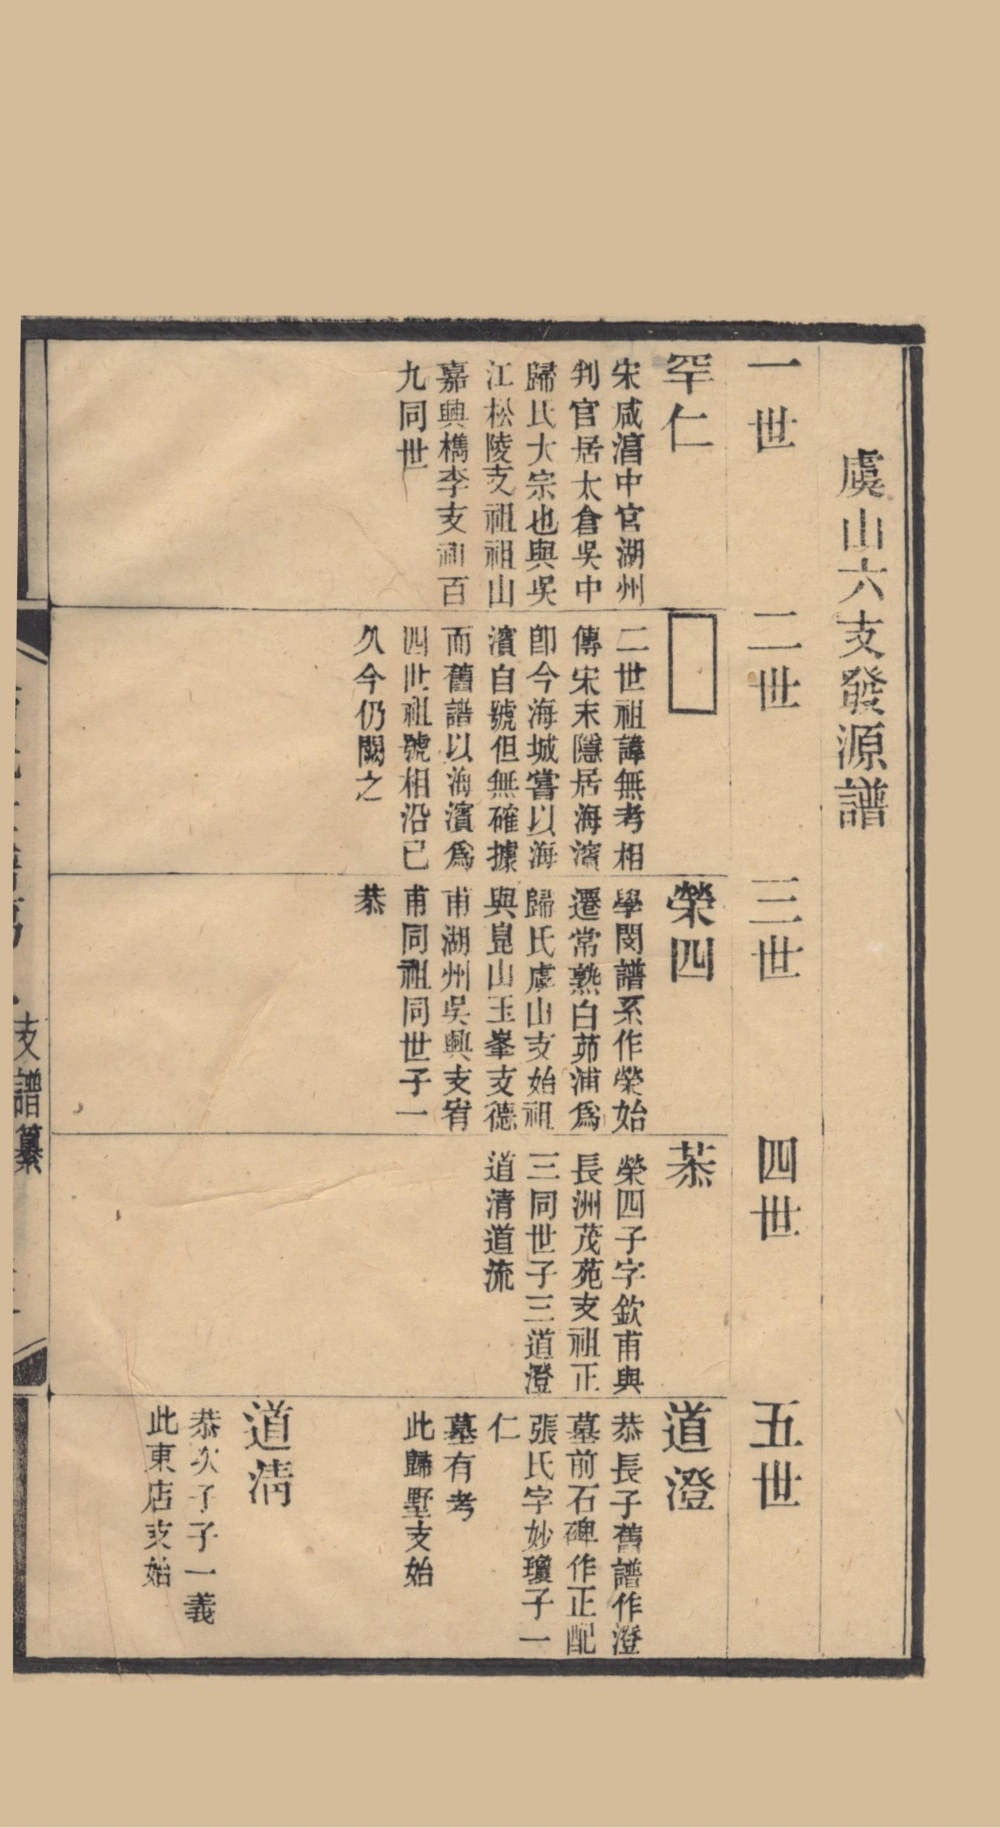 虞山六支發源譜
一世
罕仁
宋咸淳中官湖州
判官居太倉吳中
歸氏大宗也與吳
江松陵支祖祖山
嘉興檇李支祖百
九同世
二世
二世祖諱無考相
傳宋末隱居海濱
卽今海城嘗以海
濱自號但無確據
而舊譜以海濱爲
四世祖號相沿已
久今仍闕之
三世
榮四
學閔譜系作榮始
遷常熟白茆浦爲
歸氏虞山支始祖
與崑山玉峯支德
甫湖州吳興支宥
甫同祖同世子一
恭
四世
恭
榮四子字欽甫與
長洲茂苑支祖正
三同世子三道澄
道清道流
五世
道澄
恭長子舊譜作澄
墓前石碑作正配
張氏字妙瓊子一
仁
墓有考
此歸墅支始
道清
恭次子子一義
此東店支始
支譜纂